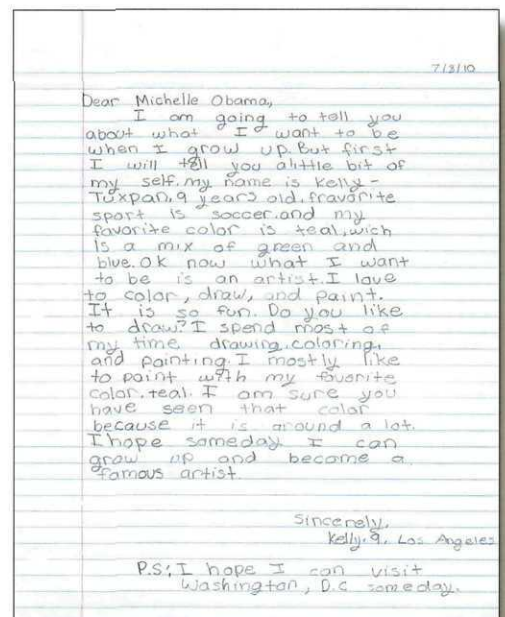 7/3/10
Dear Michelle Obama,
I am going to tell you
about what I want to be
when I grow up. But first
I will tell you alittle bit of
my self. my name is Kelly-
Tuxpan. 9 years old. fravorite
sport is soccer. and my
favorite color is teal, wich
is a mix of green and
blue. Ok now what I want
to be is an artist. I love
to color, draw, and paint.
It is so fun. Do you like
to draw? I spend most of
my time drawing. coloring,
and painting. I mostly like
to paint with my favorite
color. teal. I am sure you
have seen that color
because it is around a lot.
I hope someday I can
grow up and become a
famous artist.
Sincerely,
Kelly. 9. Los Angeles
P.S: I hope I can visit
Washington, D.C someday.